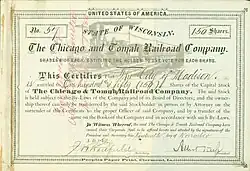 UNITED STATES OF AMERICA.
STATE OF WISCONSIN.
No.
150 Shares.
The Chicago and Tomah Railroad Company.
SHARES $100 EACH, ENTITLING THE HOLDER TO ONE VOTE FOR EACH SHARE.
This Certifies That The City of Madison
is entitled to One hundred & fifty (150) Shares of the Capital Stock
of The Chicago & Tomah Railroad Company. The Stock
is held subject to the By-Laws of the Company and of its Board of Directors; the ownership
thereof can only be transferred by the said Stockholder in person or by Attorney on the
surrender of this Certificate to the proper Officer of said Company, and by a transfer of the
same on the Books of the Company and in accordance with such By-Laws.
In Witness Whereof, the said The Chicago & Tomah Railroad Company have
caused their Corporate Seal to be affixed hereto and attested by the signatures of the
President and Secretary this